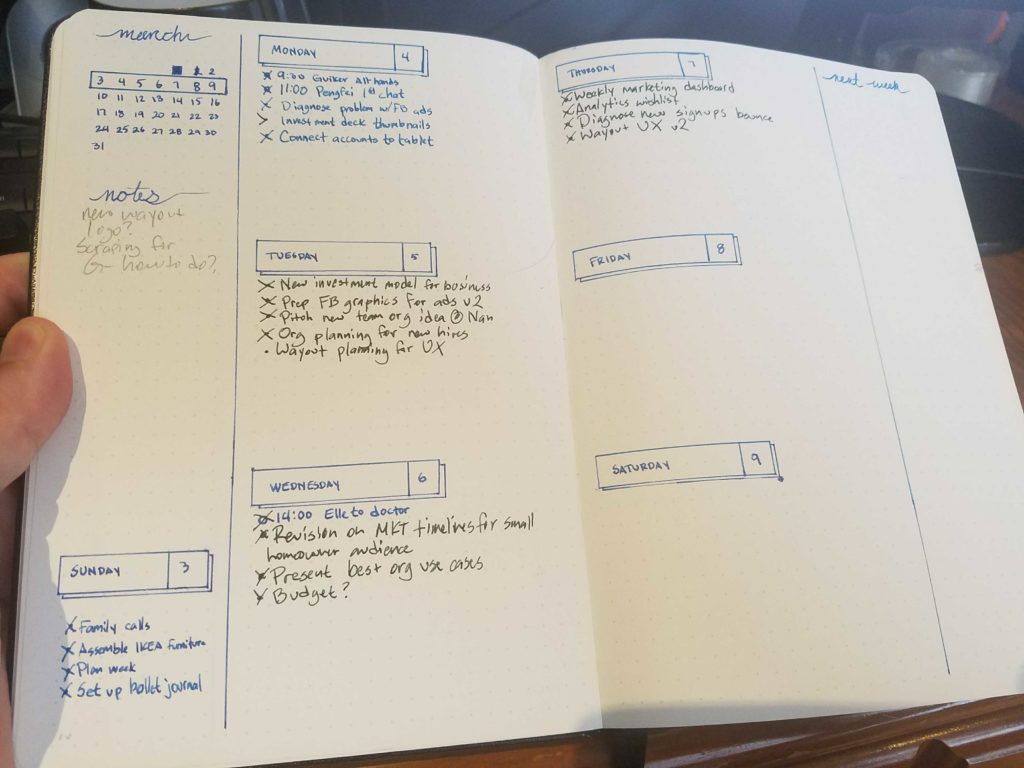 march
1 2
3 4 5 6 7 8 9
10 11 12 13 14 15 16
17 18 19 20 21 22 23
24 25 26 27 28 29 30
31
notes
new wayout
logo?
Scraping for
G- how to do?
SUNDAY 3
x Family calls
x Assemble IKEA furniture
x Plan week
x Set up bullet journal
MONDAY 4
x 9:00 Guiker All hands
x 11:00 Pengfei 1st chat
x Diagnose problem w/FB ads
> Investment deck thumbnails
x Connect accounts to tablet
TUESDAY 5
x New investment model for business
x Prep FB graphics for ads v2
x Pitch new team org idea @ Nan
x Org planning for new hires
• Wayout planning for UX
WEDNESDAY 6
x 14:00 Elle to doctor
x Revision on MKT timelines for small
homeowner audience
x Present best org use cases
x Budget?
THURSDAY 7
x Weekly marketing dashboard
x Analytics wishlist
x Diagnose new signups bounce
x Wayout UX v2
FRIDAY 8
SATURDAY 9
next week